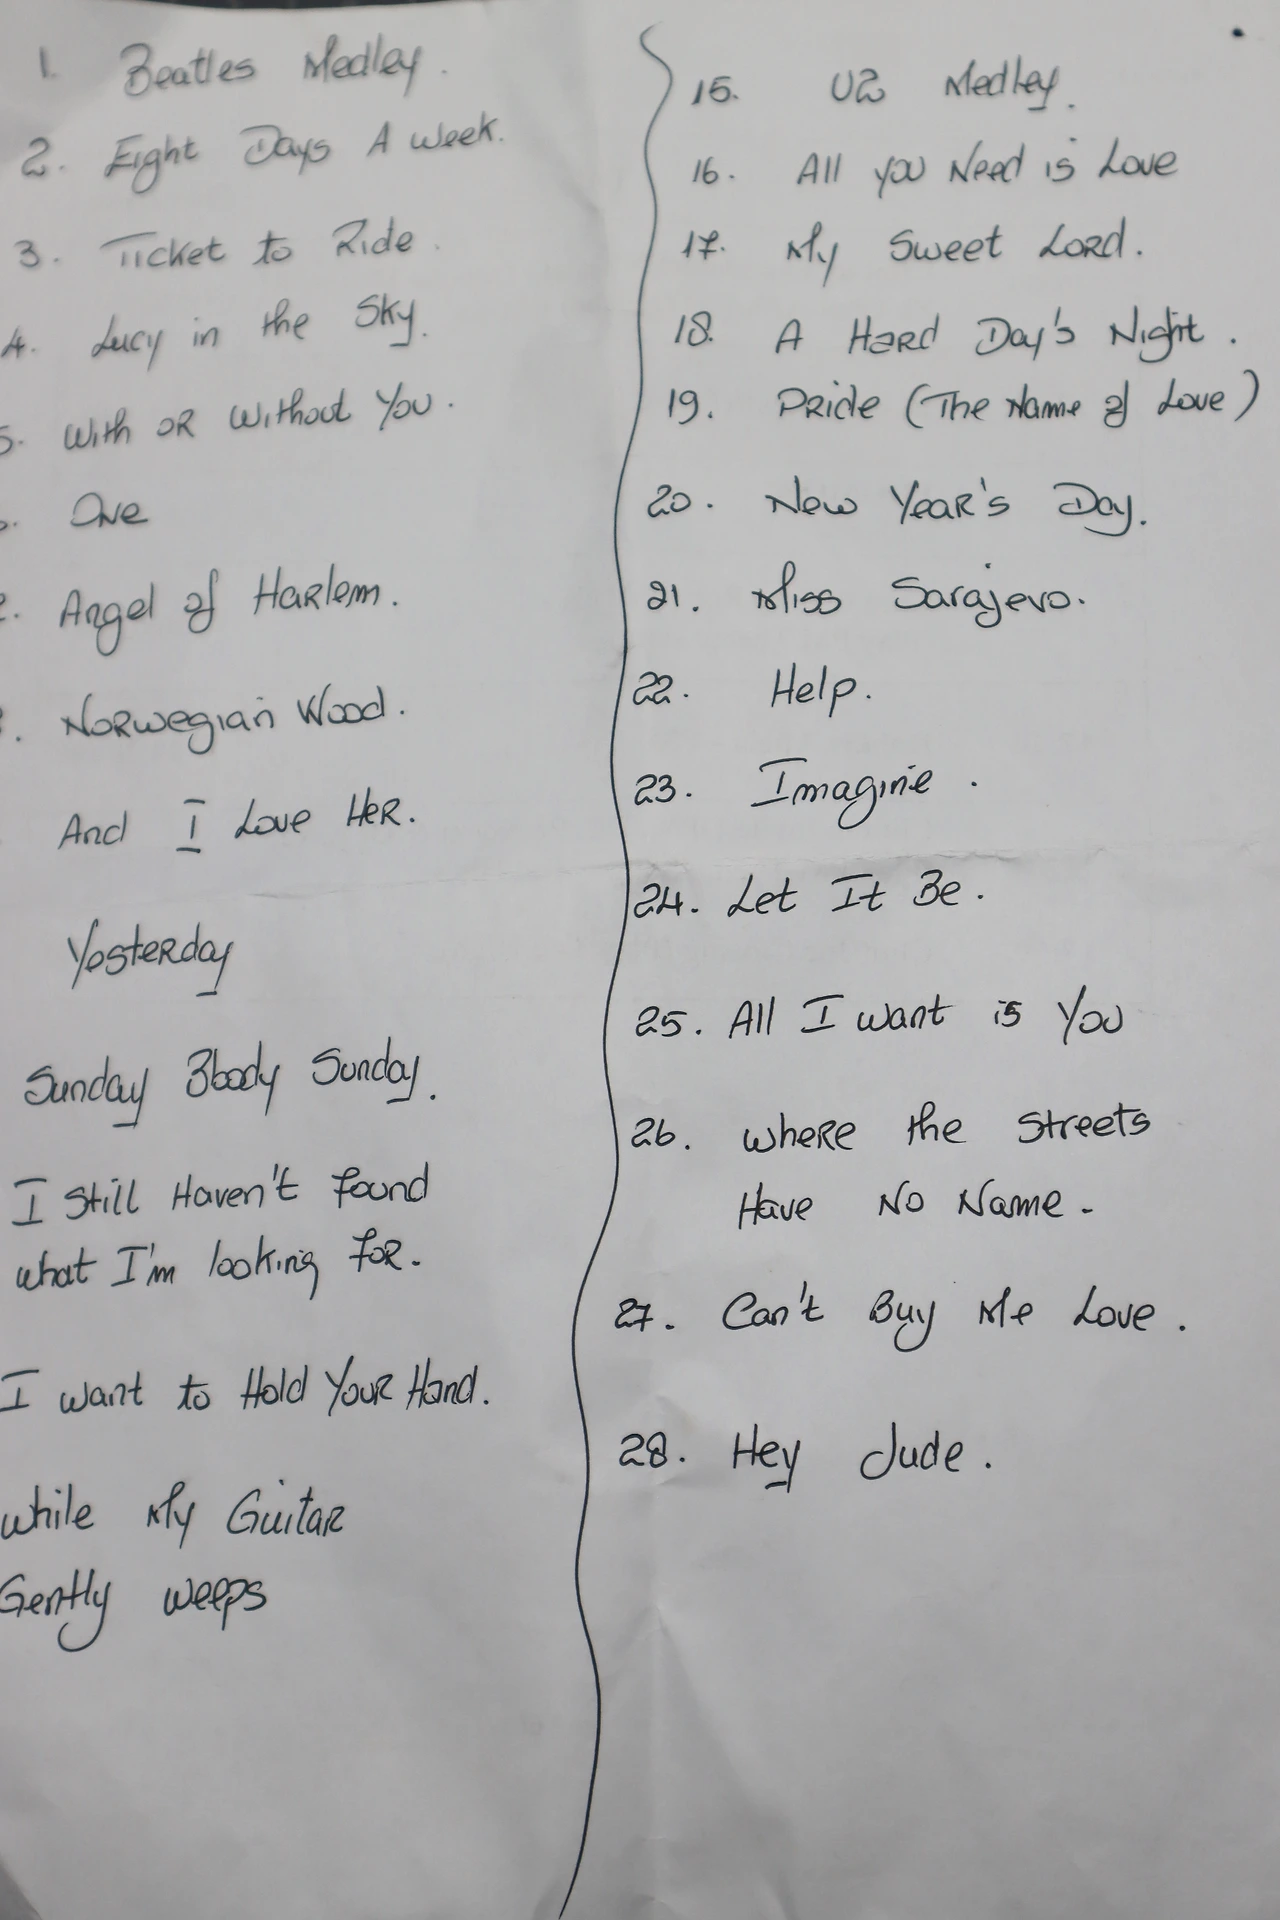 1. Beatles Medley.
2. Eight Days A Week.
3. Ticket to Ride.
4. Lucy in the Sky.
5. With OR Without You.
. One
. Angel of Harlem.
. Norwegian Wood.
And I Love Her.
Yesterday
Sunday Bloody Sunday.
I Still Haven't found
what I'm looking for.
I want to Hold Your Hand.
While My Guitar
Gently weeps
15. U2 Medley.
16. All you Need is Love
17. My Sweet Lord.
18. A Hard Day's Night.
19. Pride (The Name of Love)
20. New Year's Day.
21. Miss Sarajevo.
22. Help.
23. Imagine.
24. Let It Be.
25. All I want is You
26. Where the Streets
Have No Name.
27. Can't Buy Me Love.
28. Hey Jude.